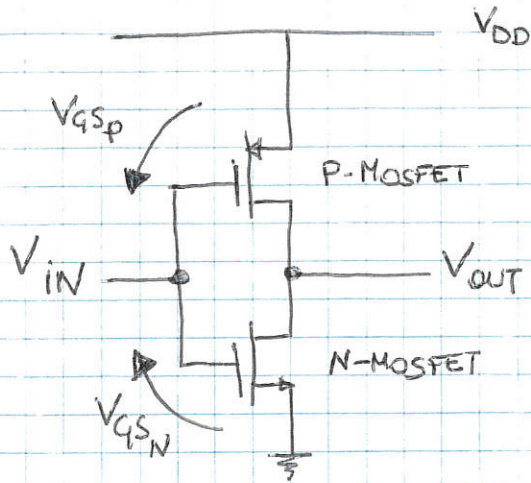 VDD
VGSp
P-MOSFET
VIN
VOUT
N-MOSFET
VGSN